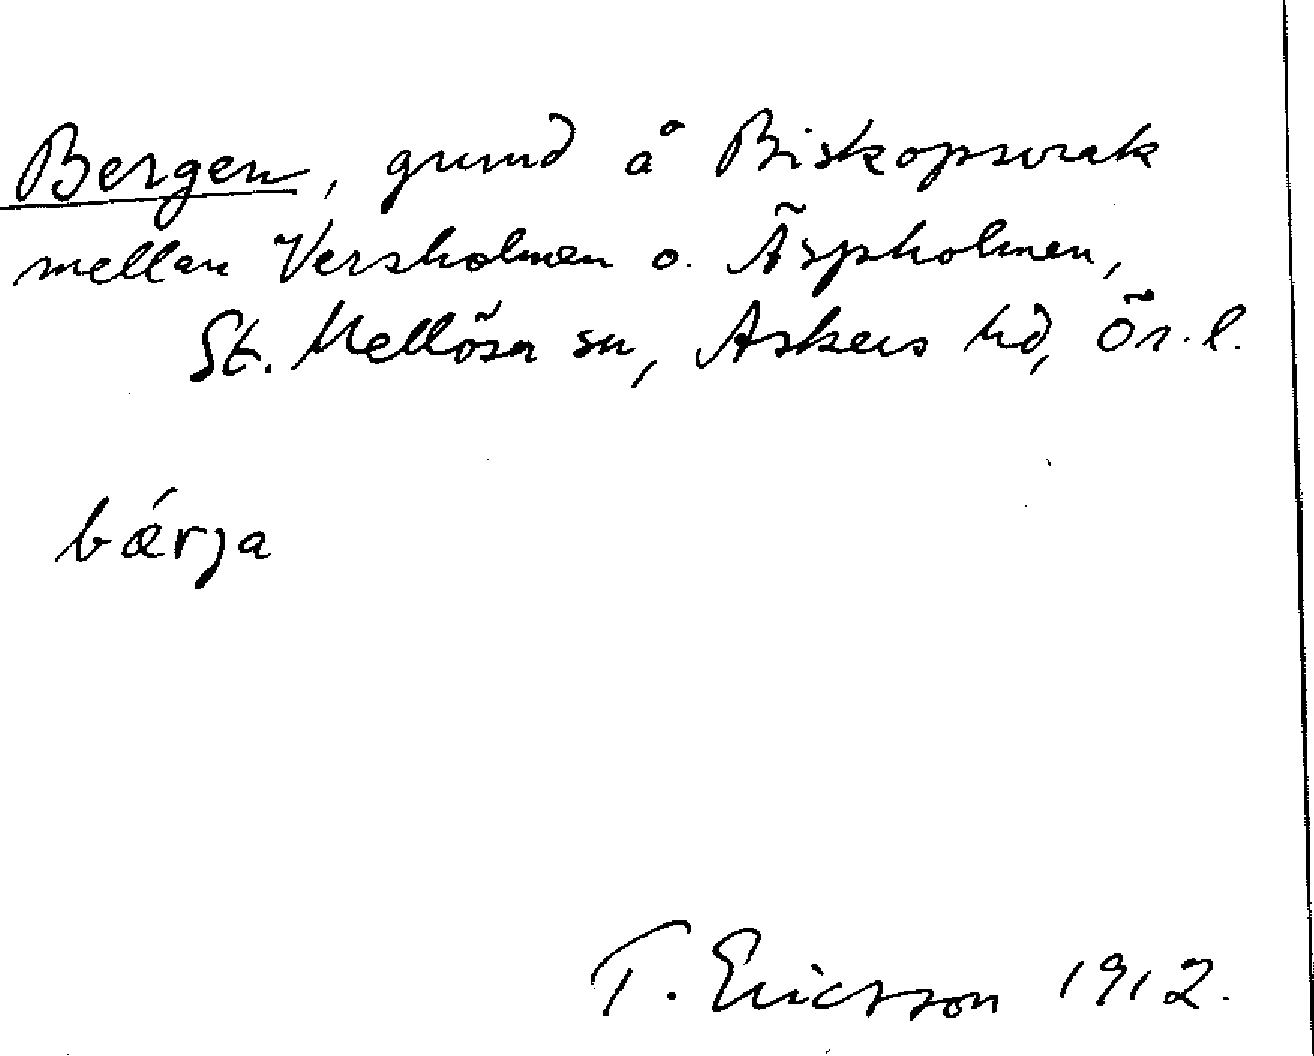 Bergen, grund å Biskopsvrak
mellan Versholmen o. Äspholmen,
St. Mellösa sn, Askers hd, Ör. l.
bǽrja
T. Ericsson 1912.